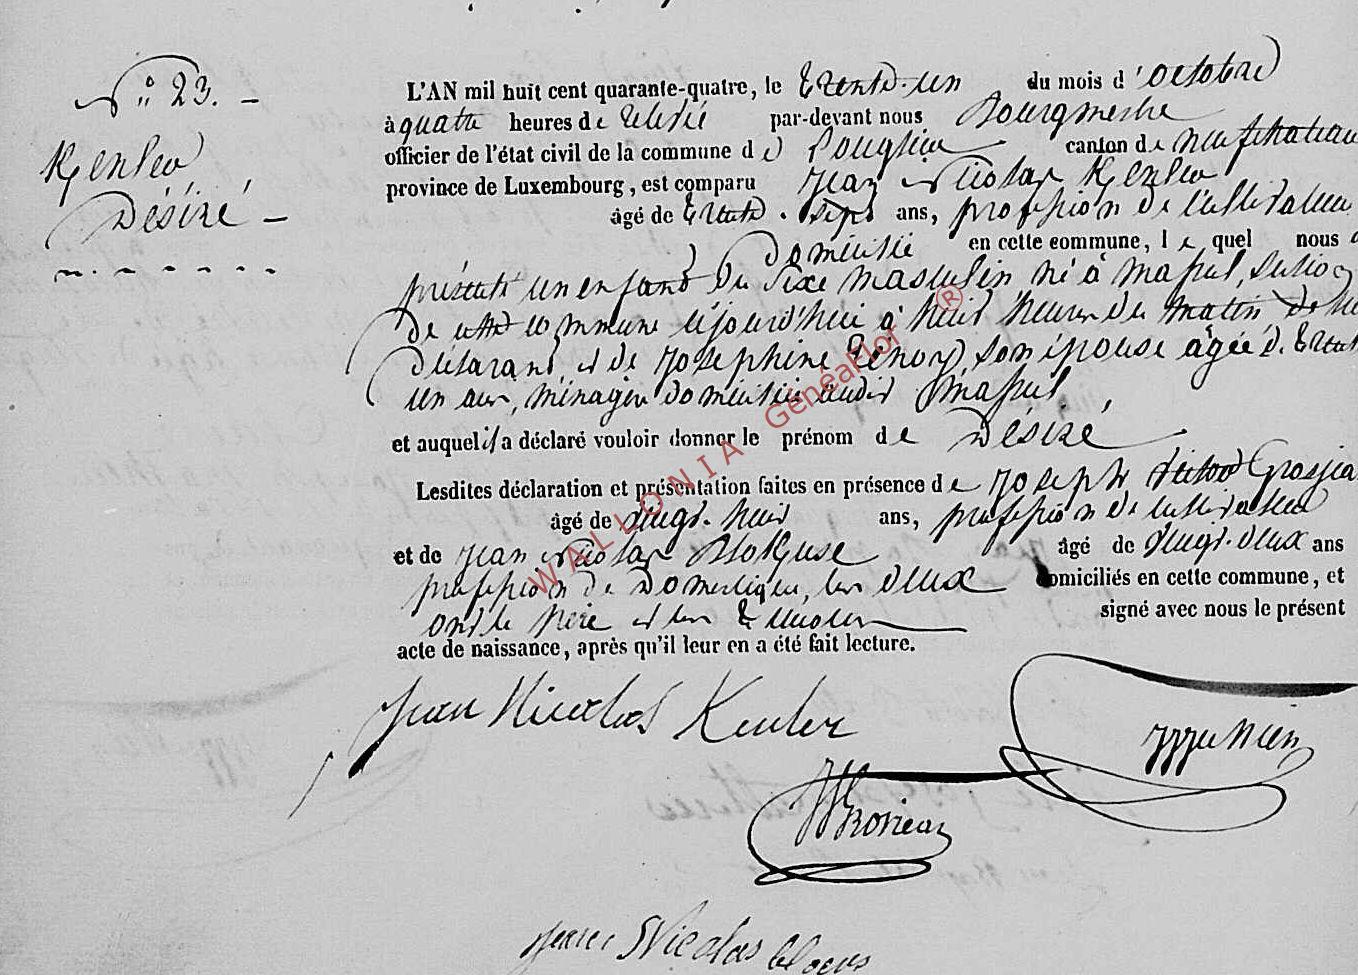 N° 23. –
Kenler
Désiré –
L'AN mil huit cent quarante-quatre, le trente-un du mois d'octobre
à quatre heures de relevé par-devant nous Bourgmestre
officier de l'état civil de la commune de canton de neufchateau
province de Luxembourg, est comparu Jean Nicolas Kenler
âgé de trente-sept ans, profession de cultivateur
domicilié en cette commune, lequel nous a
présenté un enfant du sexe masculin né à section
de cette commune aujourd'hui à heures du matin de lui
déclarant, et de Josephine son épouse âgée de trente
un ans, ménagère domiciliés audit
et auquel il a déclaré vouloir donner le prénom de Désiré
Lesdites déclaration et présentation faites en présence de Joseph Grosjean
âgé de vingt-neuf ans, profession de cultivateur
et de Jean Nicolas âgé de vingt-deux ans
profession de domestique, les deux domiciliés en cette commune, et
ont le père et les témoins signé avec nous le présent
acte de naissance, après qu'il leur en a été fait lecture.
Jean Nicolas Kenler
Jean Nicolas
WALLONIA GénéaFlor ®